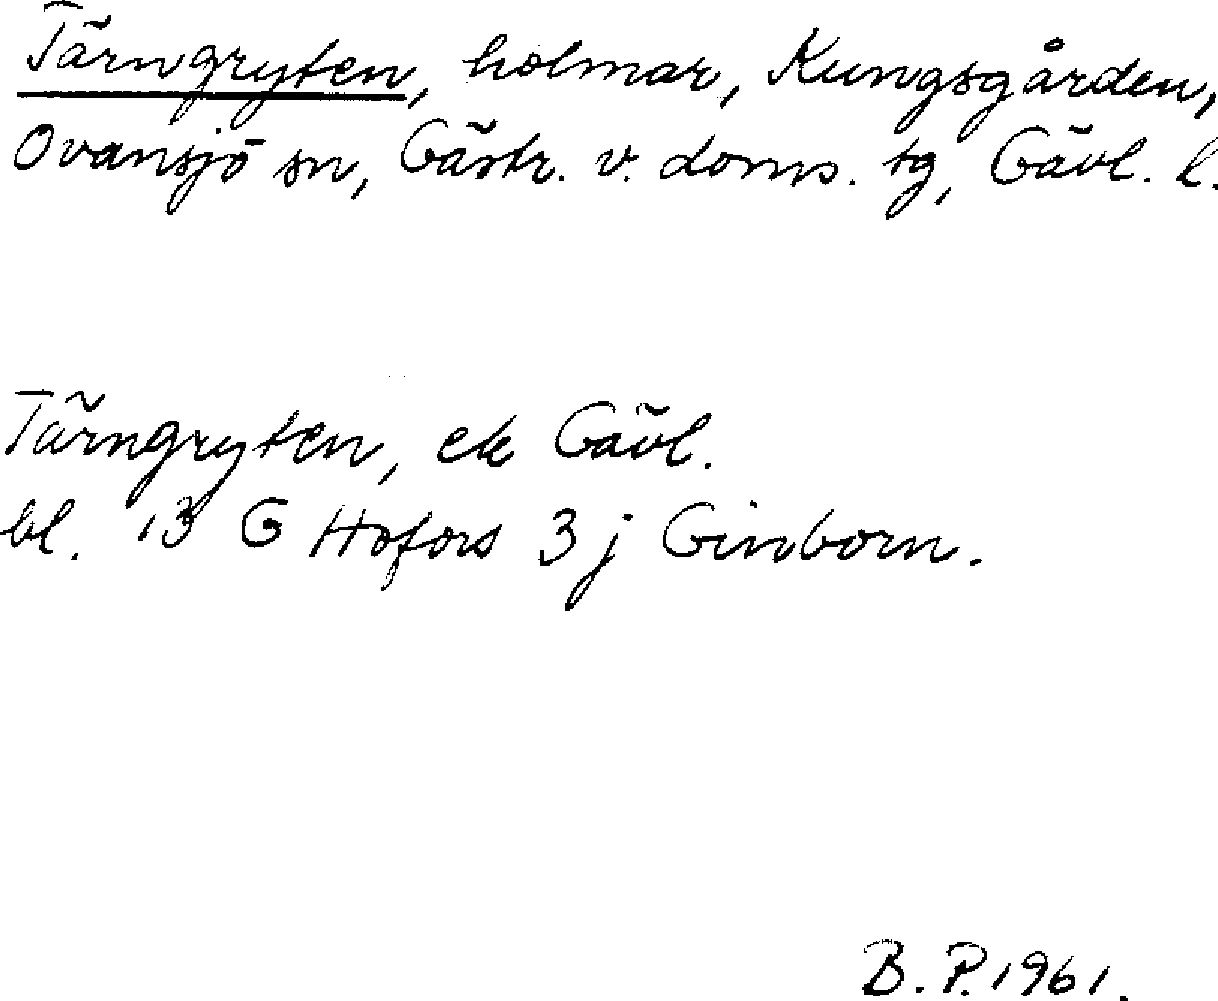 Tärngryten, holmar, Kungsgården,
Ovansjö sn, Gästr. v. doms. tg, Gävl. l.
Tärngryten, ek Gävl.
bl. 13 G Hofors 3 j Ginborn.
B. P. 1961.